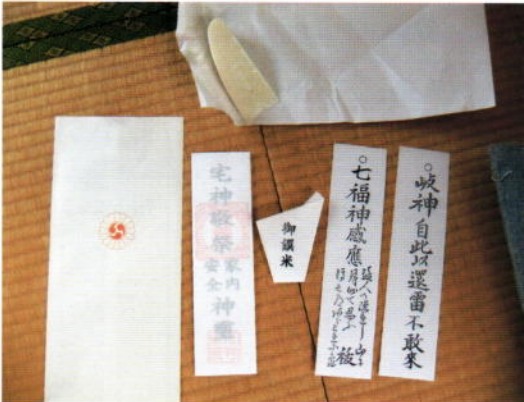 ○岐神自此以還雷不敢來
○七福神感應
祓
御饌米
宅神敬祭
家内
安全
神璽